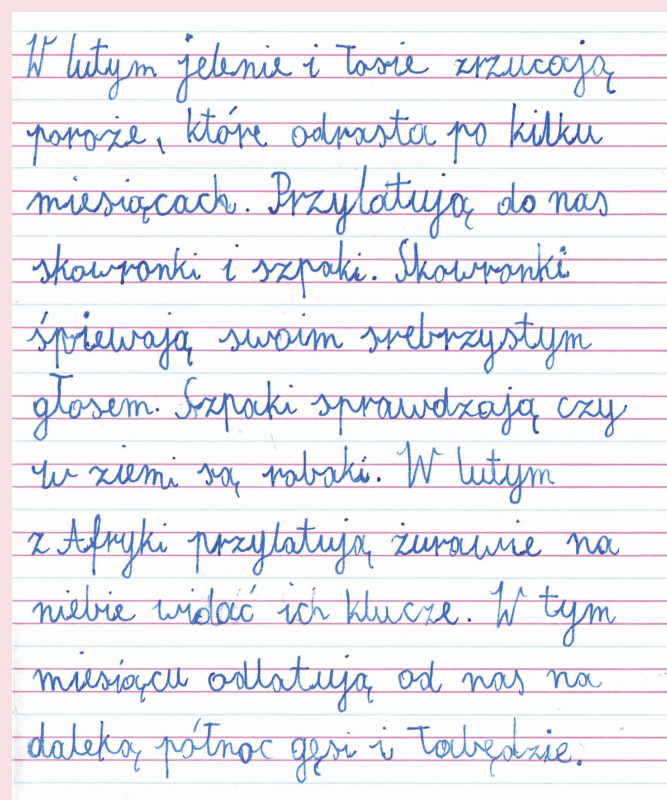 W lutym jelenie i łosie zrzucają
poroże, które odrasta po kilku
miesiącach. Przylatują do nas
skowronki i szpaki. Skowronki
śpiewają swoim srebrzystym
głosem. Szpaki sprawdzają czy
w ziemi są robaki. W lutym
z Afryki przylatują żurawie na
niebie widać ich klucze. W tym
miesiącu odlatują od nas na
daleką północ gęsi i łabędzie.